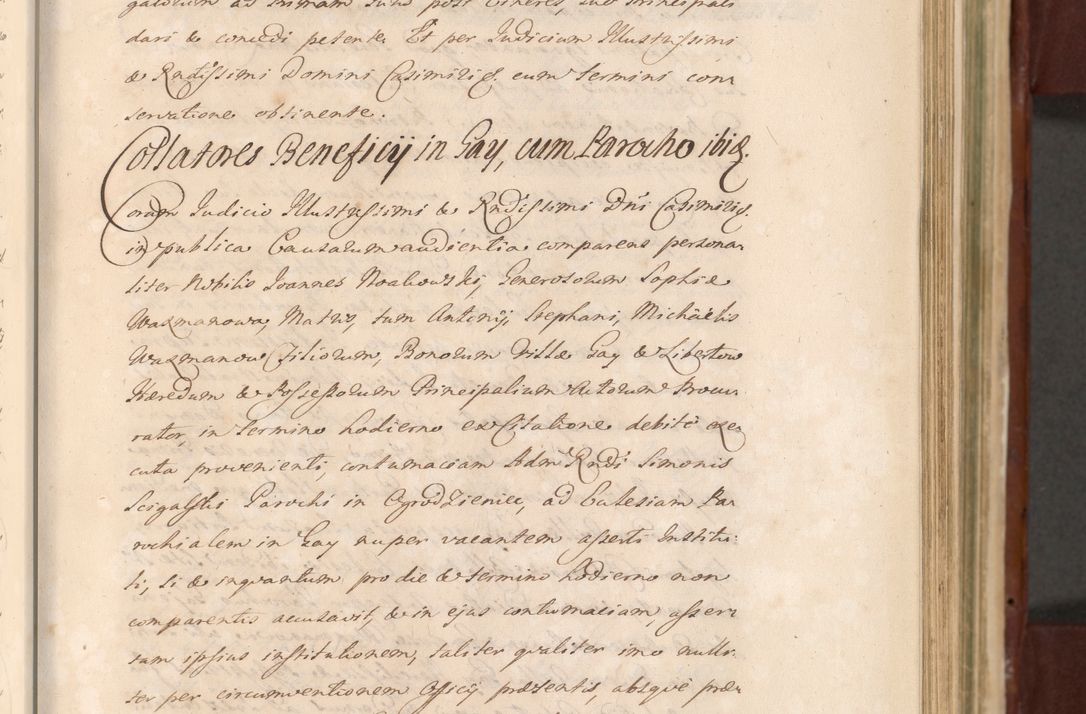 dari & concedi petente. Et per Judicium Illustrissimi
& Rndissimi Domini Casimiri &. cum termini con-
servatione obtinente.
Collatores Beneficij in Gay, cum Parocho ibi&.
Coram Judicio Illustrissimi & Rndissimi Dni Casimiri &.
in publica Causarum audientia comparens persona-
liter Nobilis Joannes Noakowski, Generosorum Sophiæ
Wazmanowa, Matris, tum Antonij, Stephani, Michaelis
Wazmanow Filiorum, Bonorum Villæ Gay & Libertow
Hæredum & Possessorum Principalium Actorum Procu-
rator, in termino hodierno ex Citatione debite exe-
cuta provenienti, contumaciam Adm Rndi Simonis
Scigalski Parochi in Ogrodzieniec, ad Eccl'esiam Pa-
rochialem in Gay nuper vacantem asserti Institu-
ti, si & inquantum pro die & termino hodierno non
comparentis accusavit, & in ejus contumaciam, asser-
tam ipsius institutionem, taliter qualiter imo nulli-
ter per circumventionem Officij præsentis, absque præ-